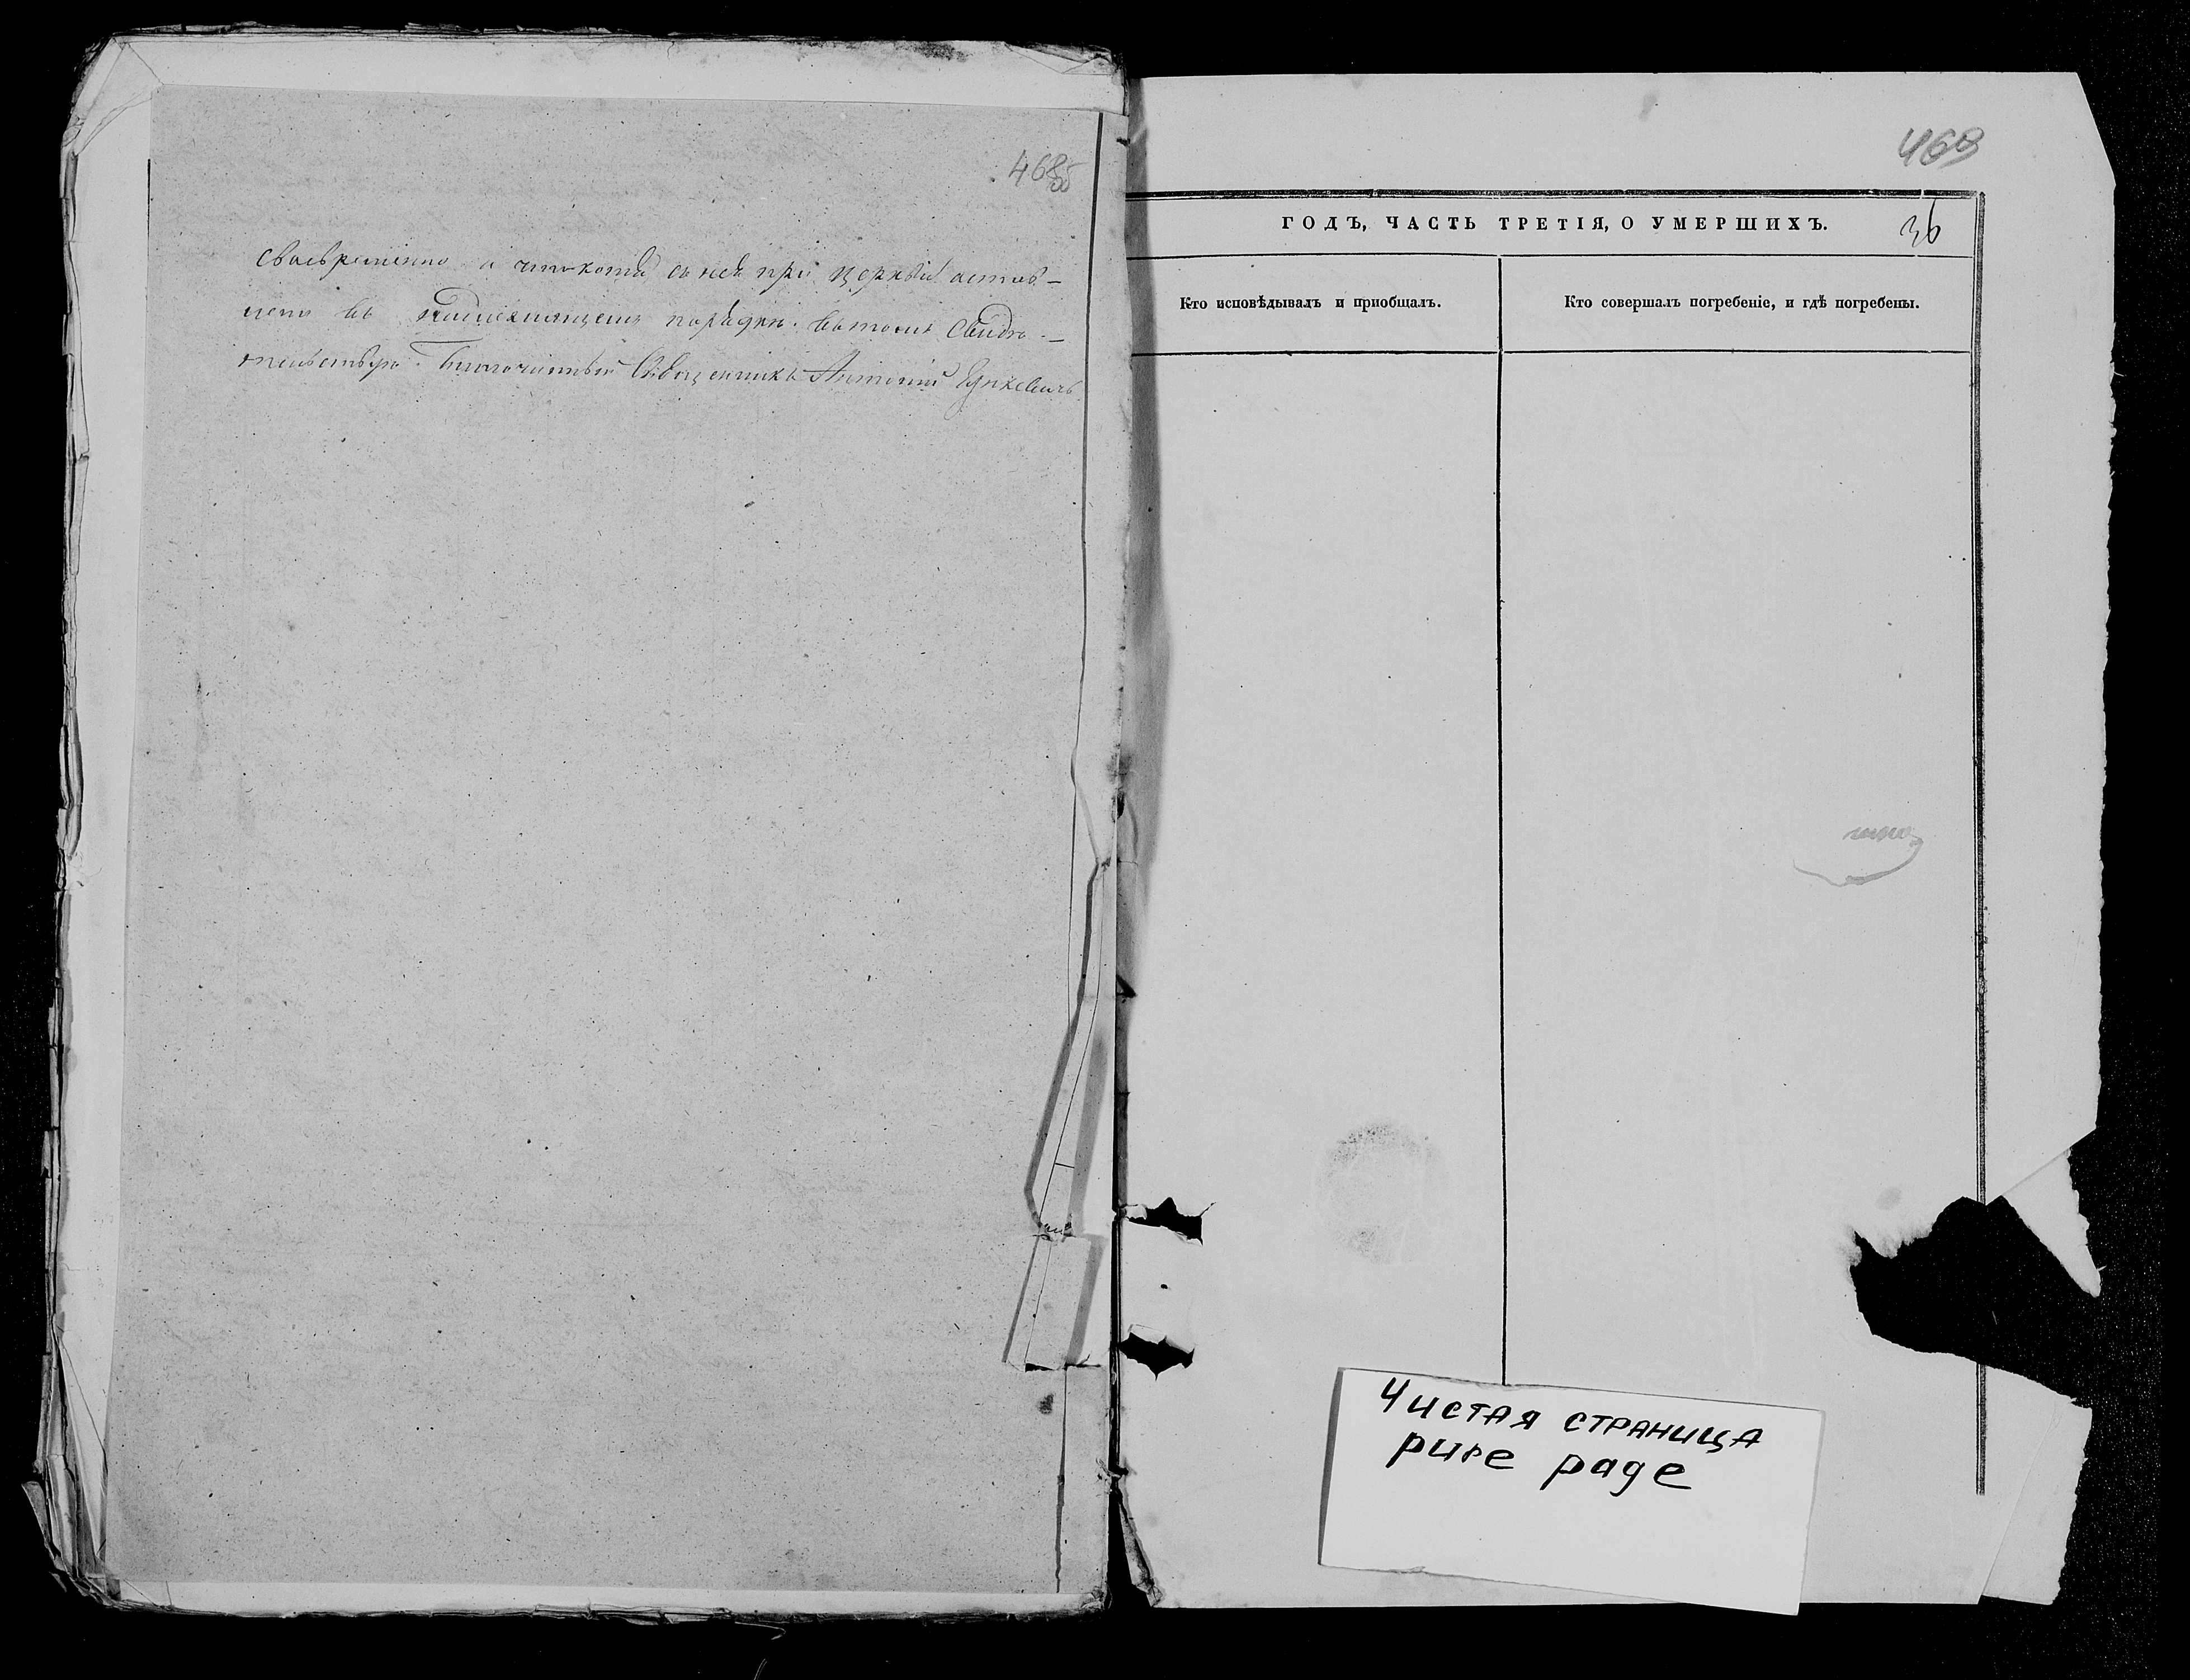 468об
своевременно и что копія съ нея при церквѣ остав-
лена въ надлежащемъ порядкѣ. въ томъ свидѣ-
тельствую. Благочинный Священникъ Антоній
469
ГОДЪ, ЧАСТЬ ТРЕТІЯ, О УМЕРШИХЪ.
36
Кто исповѣдывалъ и пріобщалъ.
Кто совершалъ погребеніе, и гдѣ погребены.
Чистая страница
pure page